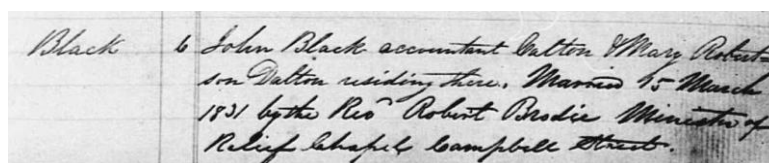 Black 6 John Black accountant Calton & Mary Robert
son Dalton residing there. Married 15 March
1831 by the Revd Robert Brodie Minister of
Relief Chapel Campbell Street.